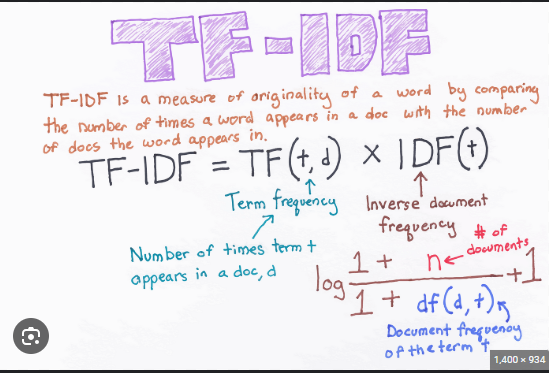 TF-IDF
TF-IDF is a measure of originality of a word by comparing
the number of times a word appears in a doc with the number
of docs the word appears in.
TF-IDF = TF(t, d) x IDF(t)
Term frequency
Inverse document
frequency
Number of times term t
appears in a doc, d
# of
documents
log (1 + n) / (1 + df(d, t)) + 1
Document frequency
of the term t
1,400 × 934